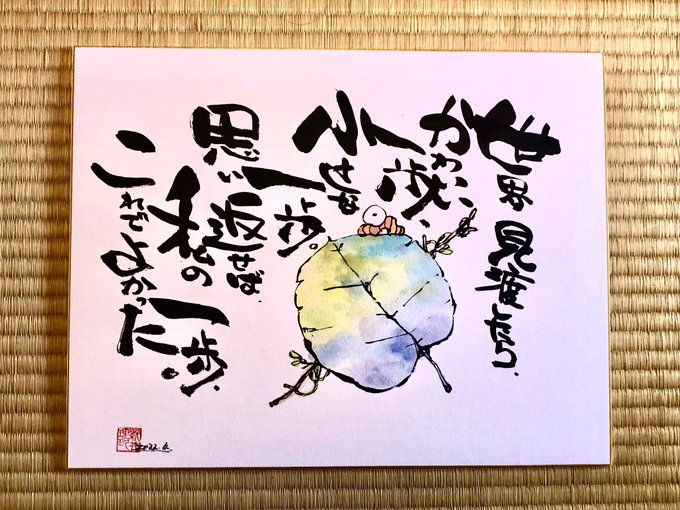 世界見渡したら、
かわいい一歩、
小さな一歩。
思い返せば、
私の一歩、
これでよかった
2022.6.